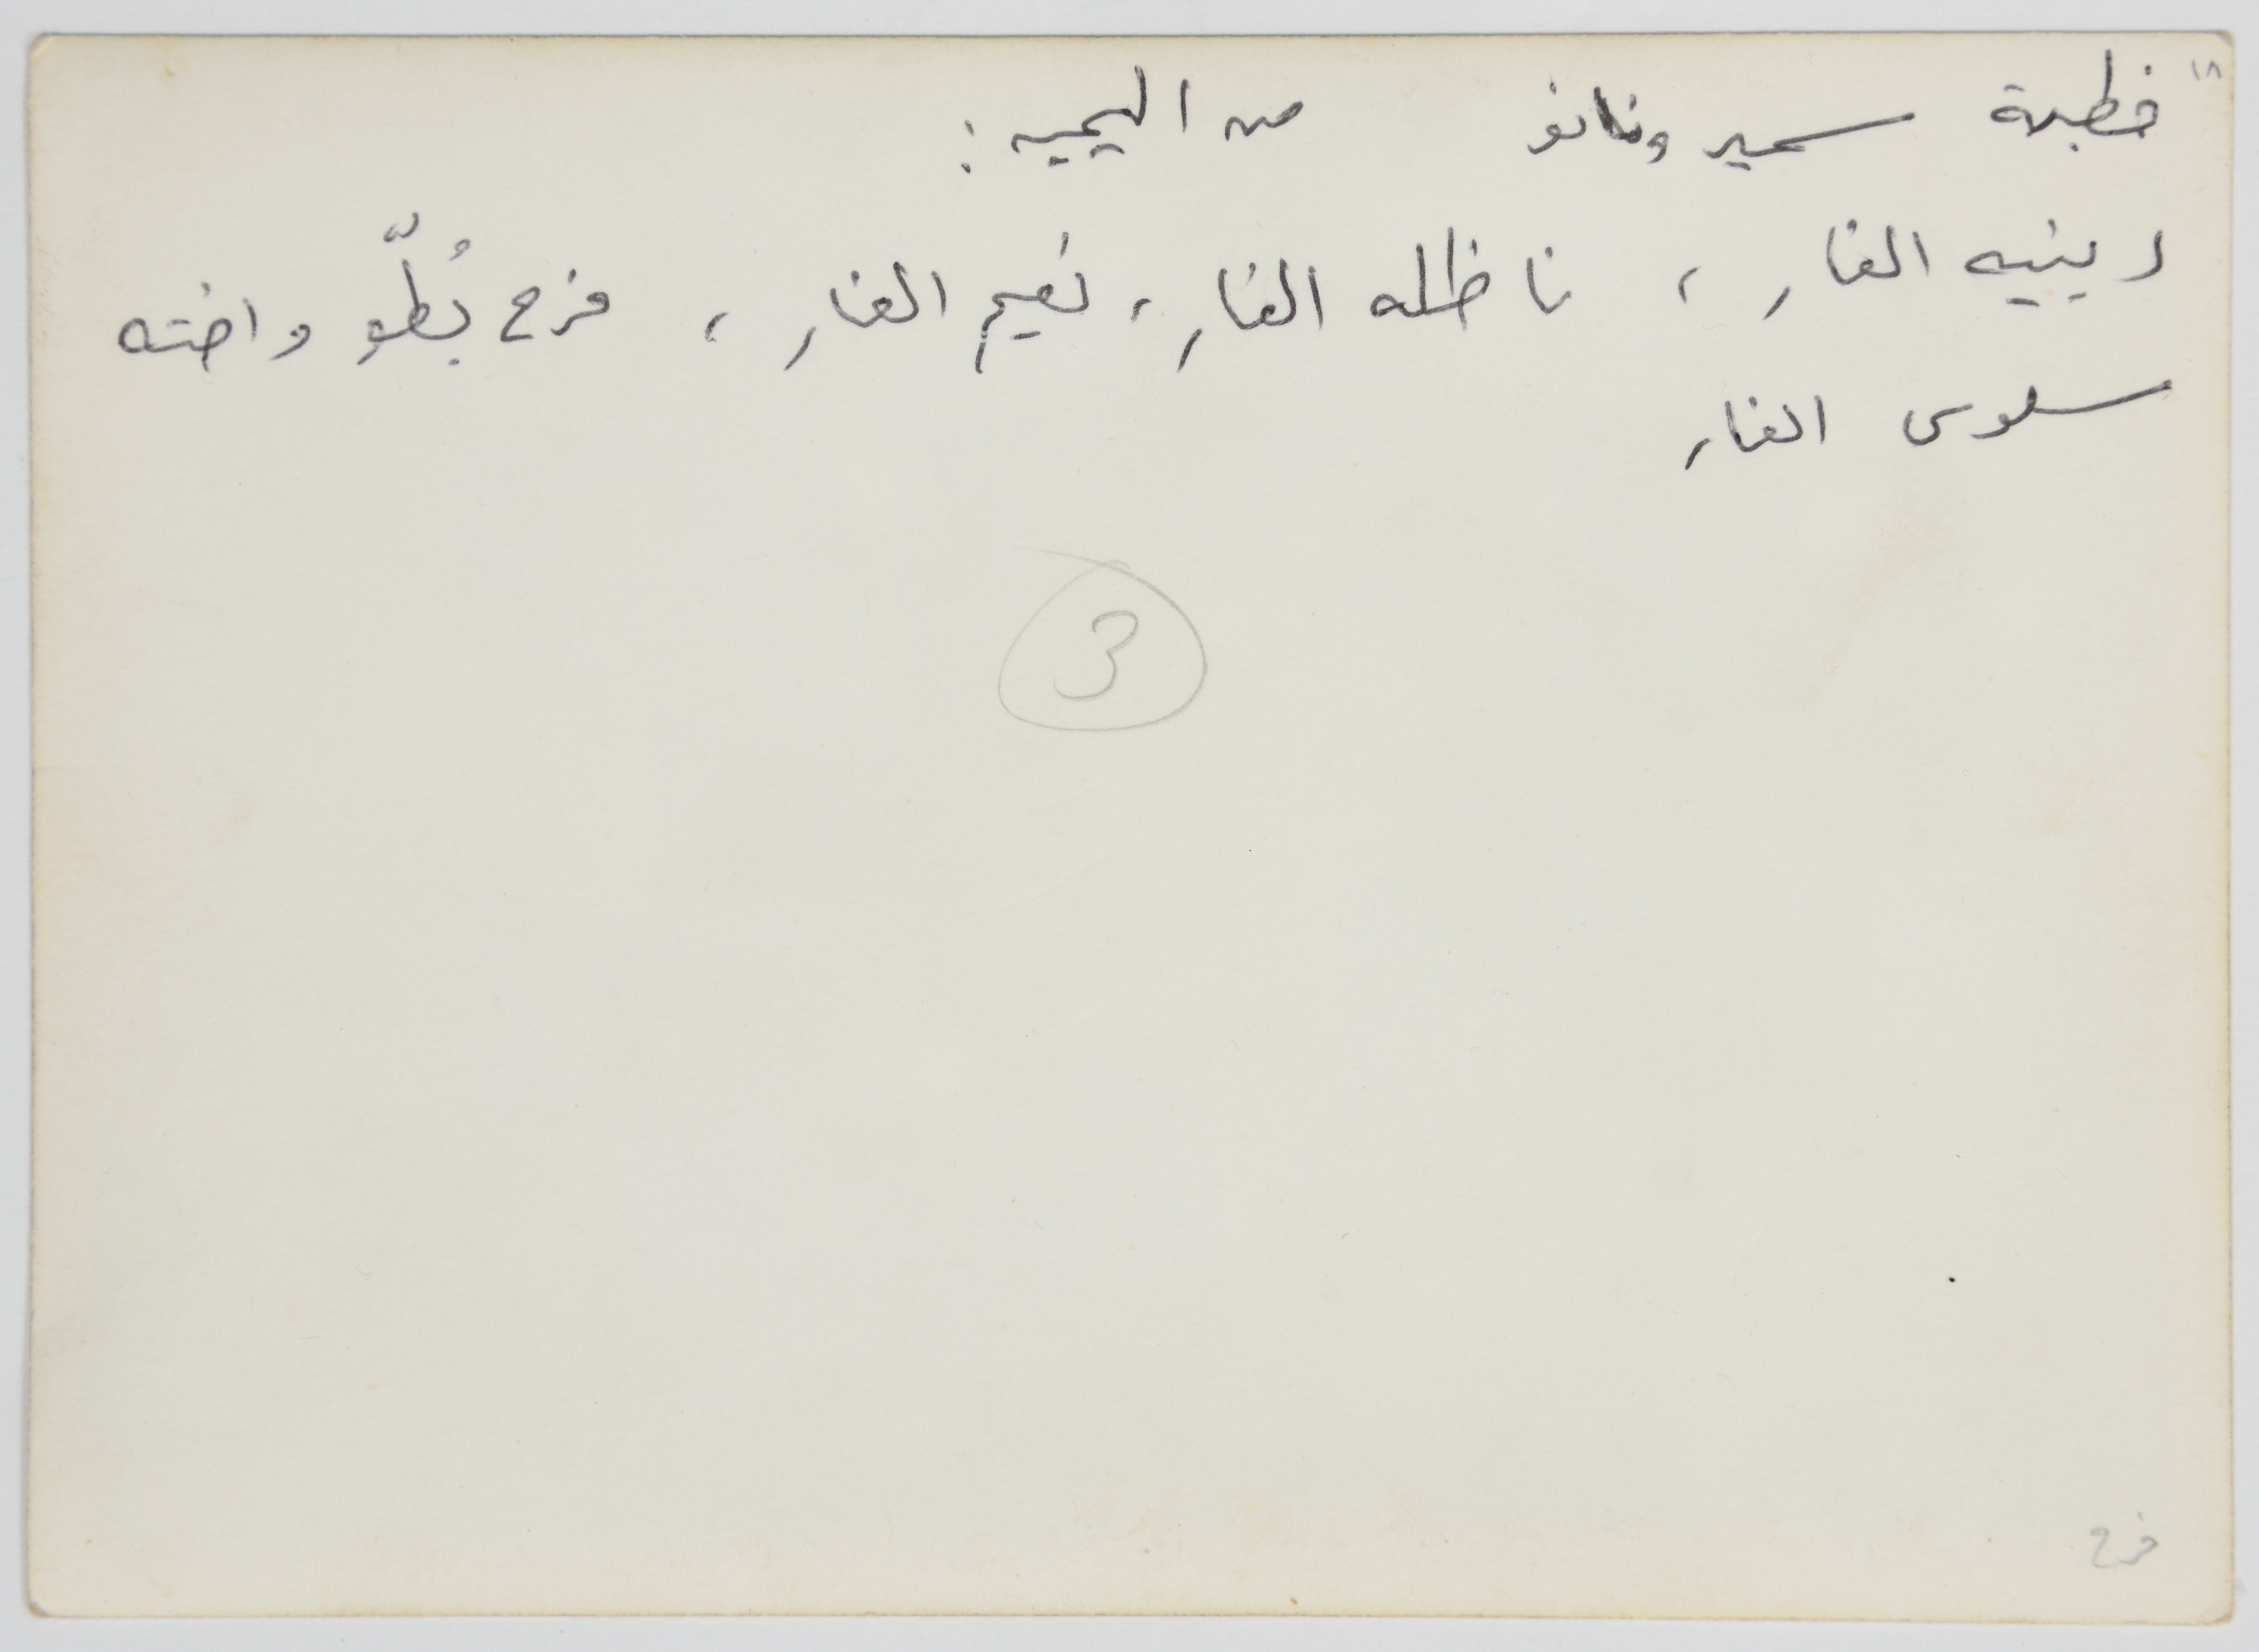 ١٨
خطبة سمير ونانو من اليمين:
رينيه الفار، ناظله الفار، نعيم الفار، فرح بُطّو واخته
سلوى الفار
3
فرح